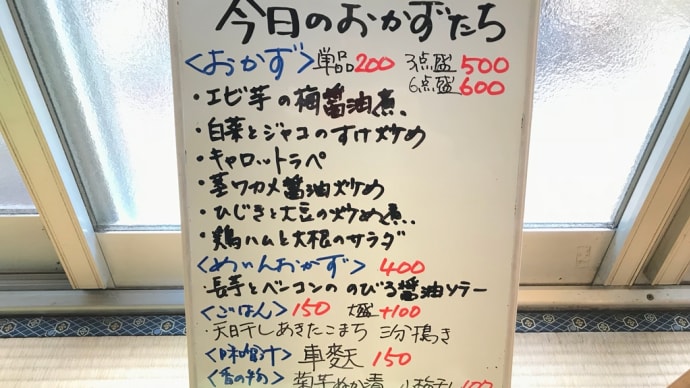 今日のおかずたち
<おかず> 単品200 3点盛500
6点盛600
・エビ芋の梅醤油煮、
・白菜とジャコのすけ炒め
・キャロットラペ
・茎ワカメ醤油炒め
・ひじきと大豆の炒め煮、
・鶏ハムと大根のサラダ
<めいんおかず> 400
・長芋とベーコンの のびろ醤油ソテー
<ごはん> 150 大盛+100
・天日干しあきたこまち 三分搗き
<味噌汁> 車麩 150
<香の物> 菊芋ぬか漬 100